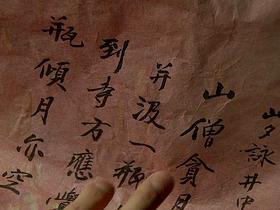 山夕詠井中
山僧貪月
并汲一瓶
到寺方應覺
瓶傾月亦空